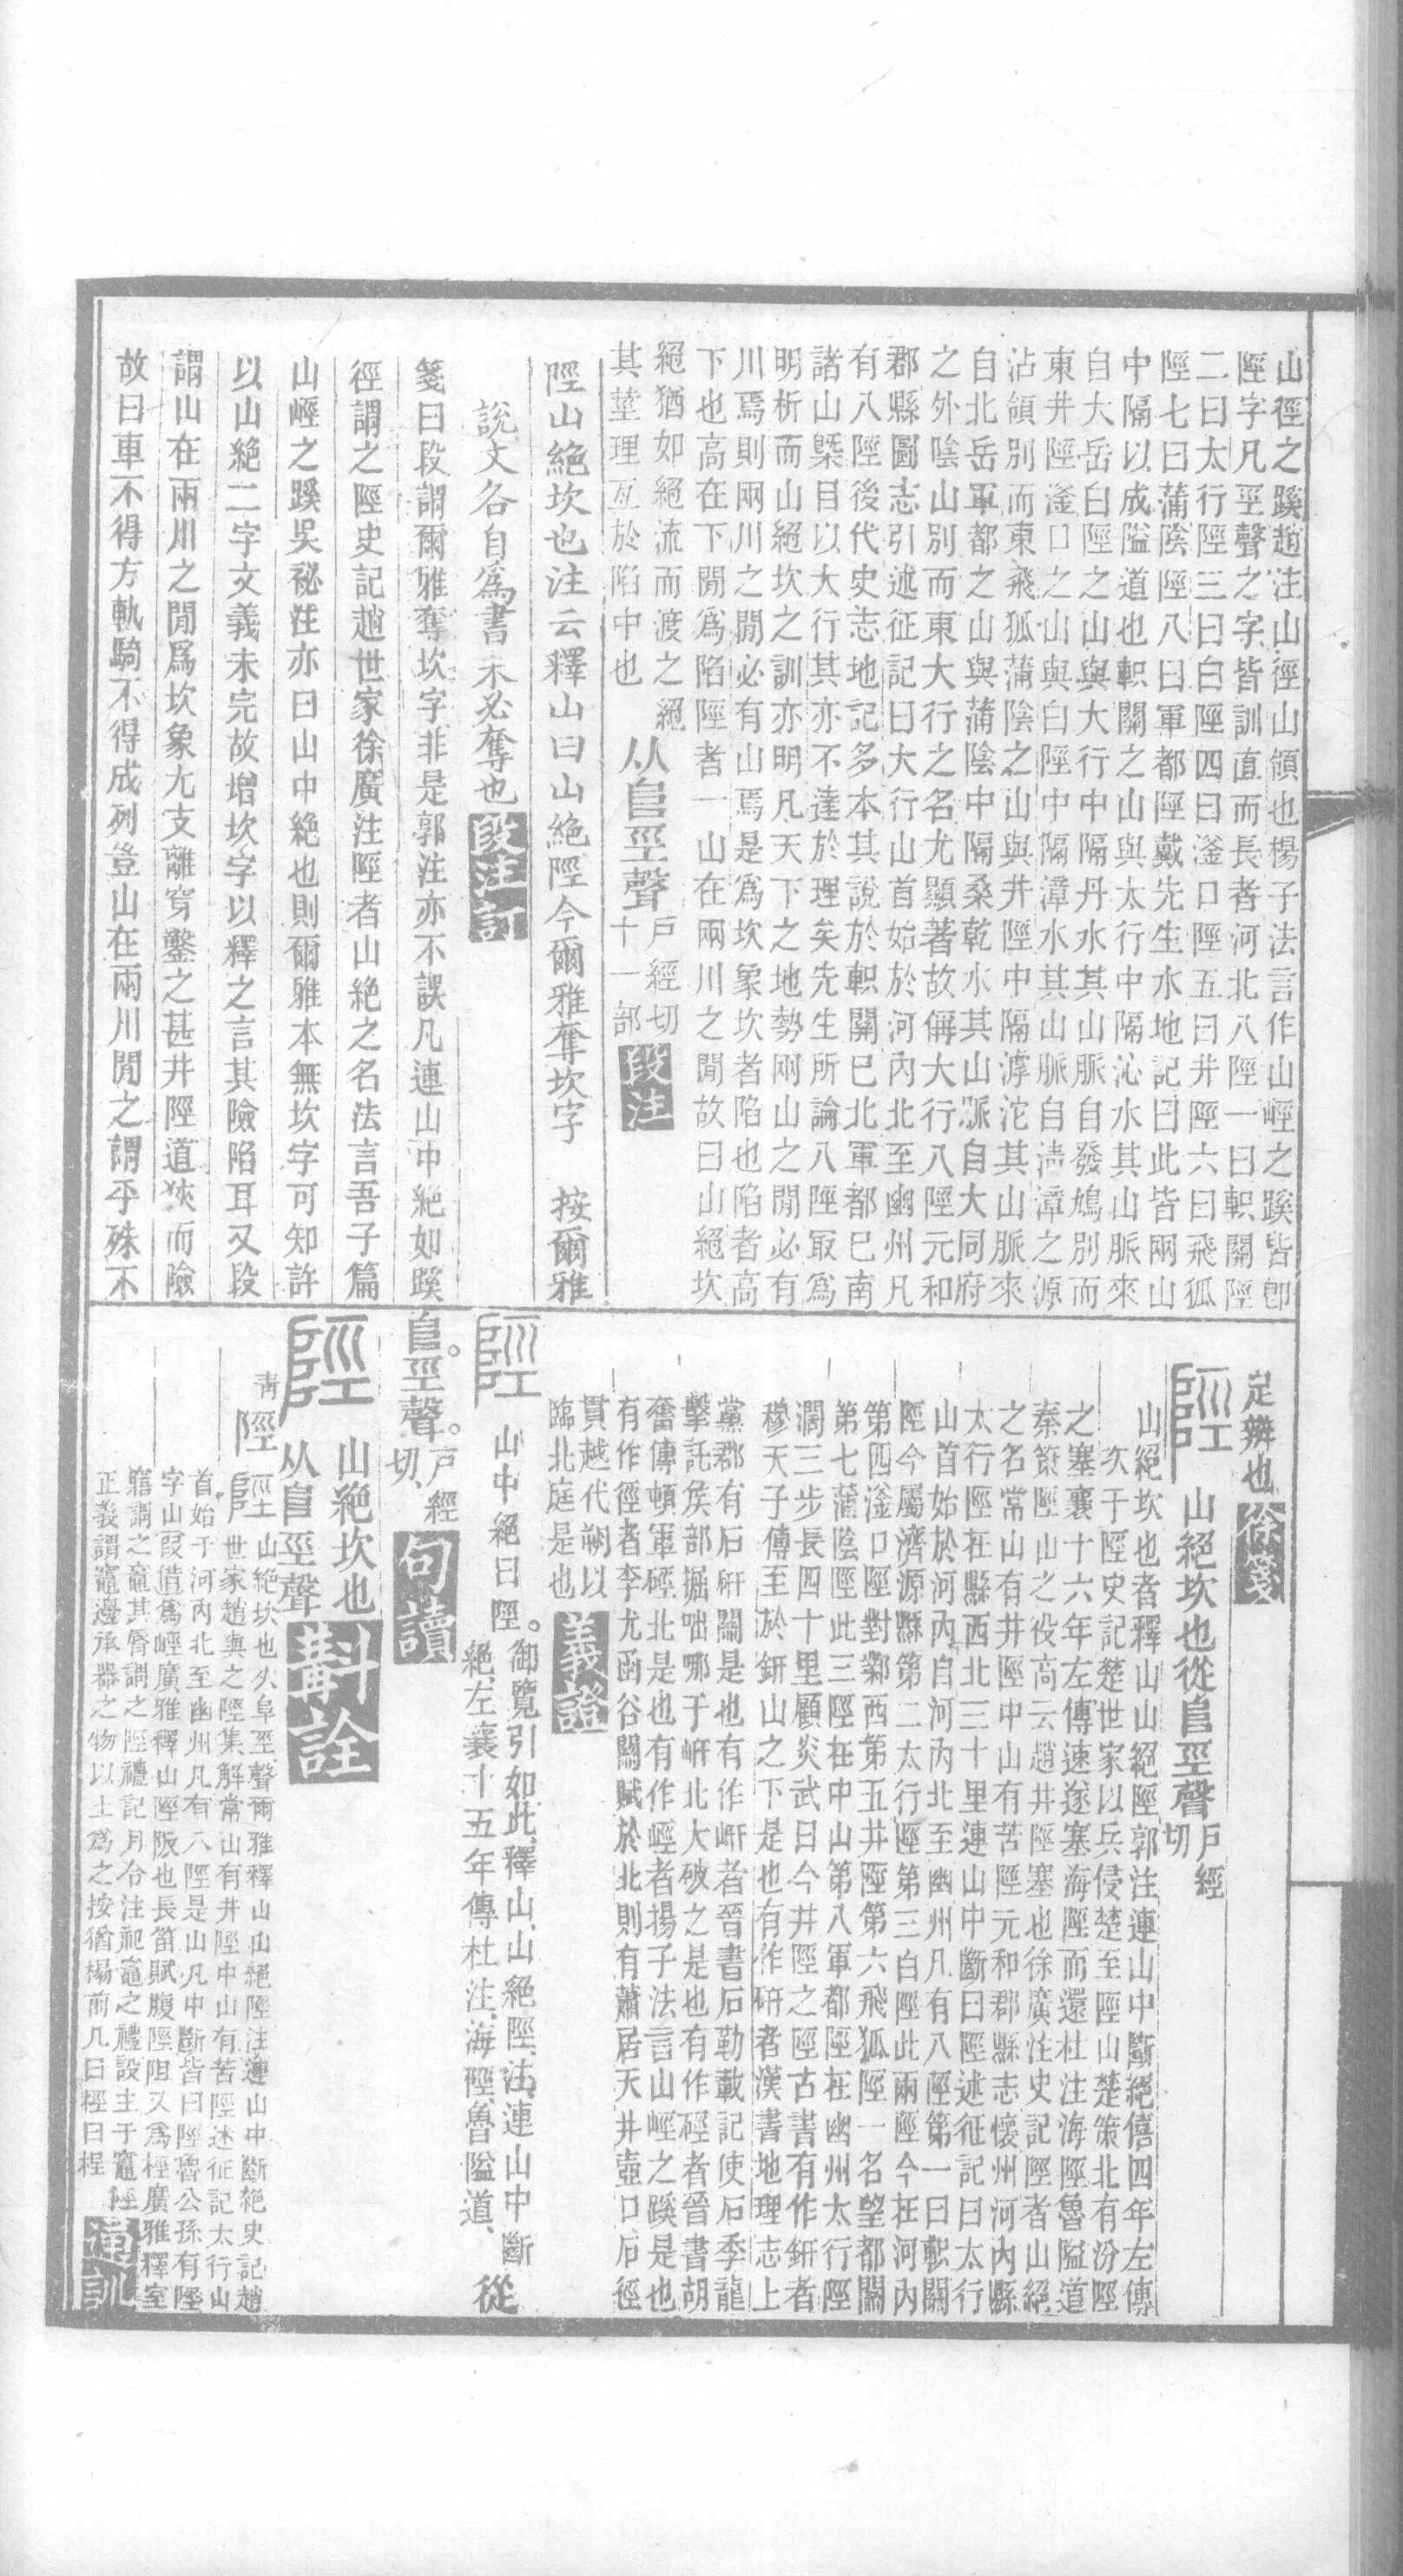 山徑之蹊趙注山徑山領也楊子法言作山崵之蹊皆卽
陘字凡巠聲之字皆訓直而長者河北八陘一曰軹關陘
二曰太行陘三曰白陘四曰滏口陘五曰井陘六曰飛狐
陘七曰蒲陰陘八曰軍都陘戴先生水地記曰此皆兩山
中隔以成隘道也軹關之山與太行中隔沁水其山脈來
自大岳白陘之山與大行中隔丹水其山脈自發鳩別而
東井陘滏口之山與白陘中隔漳水其山脈自淸漳之源
沾領別而東飛狐蒲陰之山與井陘中隔滹沱其山脈來
自北岳軍都之山與蒲陰中隔桑乾水其山脈自大同府
之外陰山別而東大行之名尤顯著故偁大行八陘元和
郡縣圖志引述征記曰大行山首始於河內北至幽州凡
有八陘後代史志地記多本其說於軹關巳北軍都巳南
諸山槩目以大行其亦不達於理矣先生所論八陘取爲
明析而山絕坎之訓亦明凡天下之地勢兩山之閒必有
川焉則兩川之閒必有山焉是爲坎象坎者陷也陷者高
下也高在下閒爲陷陘者一山在兩川之閒故曰山絕坎
絕猶如絕流而渡之絕
其莖理互於陷中也
从𨸏巠聲
戶經切
十一部
段注
陘山絕坎也注云釋山曰山絕陘今爾雅奪坎字　按爾雅
說文各自爲書未必奪也段注訂
箋曰段謂爾雅奪坎字非是郭注亦不誤凡連山中絕如蹊
徑謂之陘史記趙世家徐廣注陘者山絕之名法言吾子篇
山崵之蹊吳祕注亦曰山中絶也則爾雅本無坎字可知許
以山絶二字文義未完故增坎字以釋之言其險陷耳又段
謂山在兩川之閒爲坎象尢支離穿鑿之甚井陘道狹而險
故曰車不得方軌騎不得成列豈山在兩川閒之謂乎殊不
定辨也徐箋
陘　山絕坎也從𨸏巠聲
戶經
切
山絕坎也者釋山山絕陘郭注連山中斷絕僖四年左傳
次于陘史記楚世家以兵侵楚至陘山楚策北有汾陘
之塞襄十六年左傳速遂塞海陘而還杜注海陘魯隘道
秦策陘山之役高云趙井陘塞也徐廣注史記陘者山絕
之名常山有井陘中山有苦陘元和郡縣志懷州河內縣
太行陘在縣西北三十里連山中斷曰陘述征記曰太行
山首始於河內自河內北至幽州凡有八陘第一曰軹關
陘今屬濟源縣第二太行陘第三白陘此兩陘今在河內
第四滏口陘對鄴西第五井陘第六飛狐陘一名望都關
第七蒲陰陘此三陘在中山第八軍都陘在幽州太行陘
濶三步長四十里顧炎武曰今井陘之陘古書有作鈃者
穆天子傳至於鈃山之下是也有作硏者漢書地理志上
黨郡有石硏關是也有作岍者晉書石勒載記使石季龍
擊託侯部掘咄哪于岍北大破之是也有作硜者晉書胡
奮傳頓軍硜北是也有作崵者揚子法言山崵之蹊是也
有作徑者李尤函谷關賦於北則有蕭居天井壺口石徑
貫越代朔以
臨北庭是也
義證
陘　山中絕曰陘。御覽引如此、釋山、山絕陘、注、連山中斷
絕、左襄十五年傳杜注、海陘、魯隘道、從
𨸏。巠聲。
戶經
切、
句讀
陘　山絕坎也
从𨸏巠聲
斠詮
靑
陘　陘　山絕坎也从阜巠聲爾雅釋山山絕陘注連山中斷絕史記趙
世家趙與之陘集解常山有井陘中山有苦陘述征記太行山
首始于河內北至幽州凡有八陘是山凡中斷皆曰陘魯公孫有陘
字山叚借爲崵廣雅釋山陘阪也長笛賦腹陘阻又爲桱廣雅釋室
竈謂之竈其脣謂之陘禮記月令注祀竈之禮設主于竈陘
正義謂竈邊承器之物以土爲之按猶榻前几曰桱曰桯
通訓